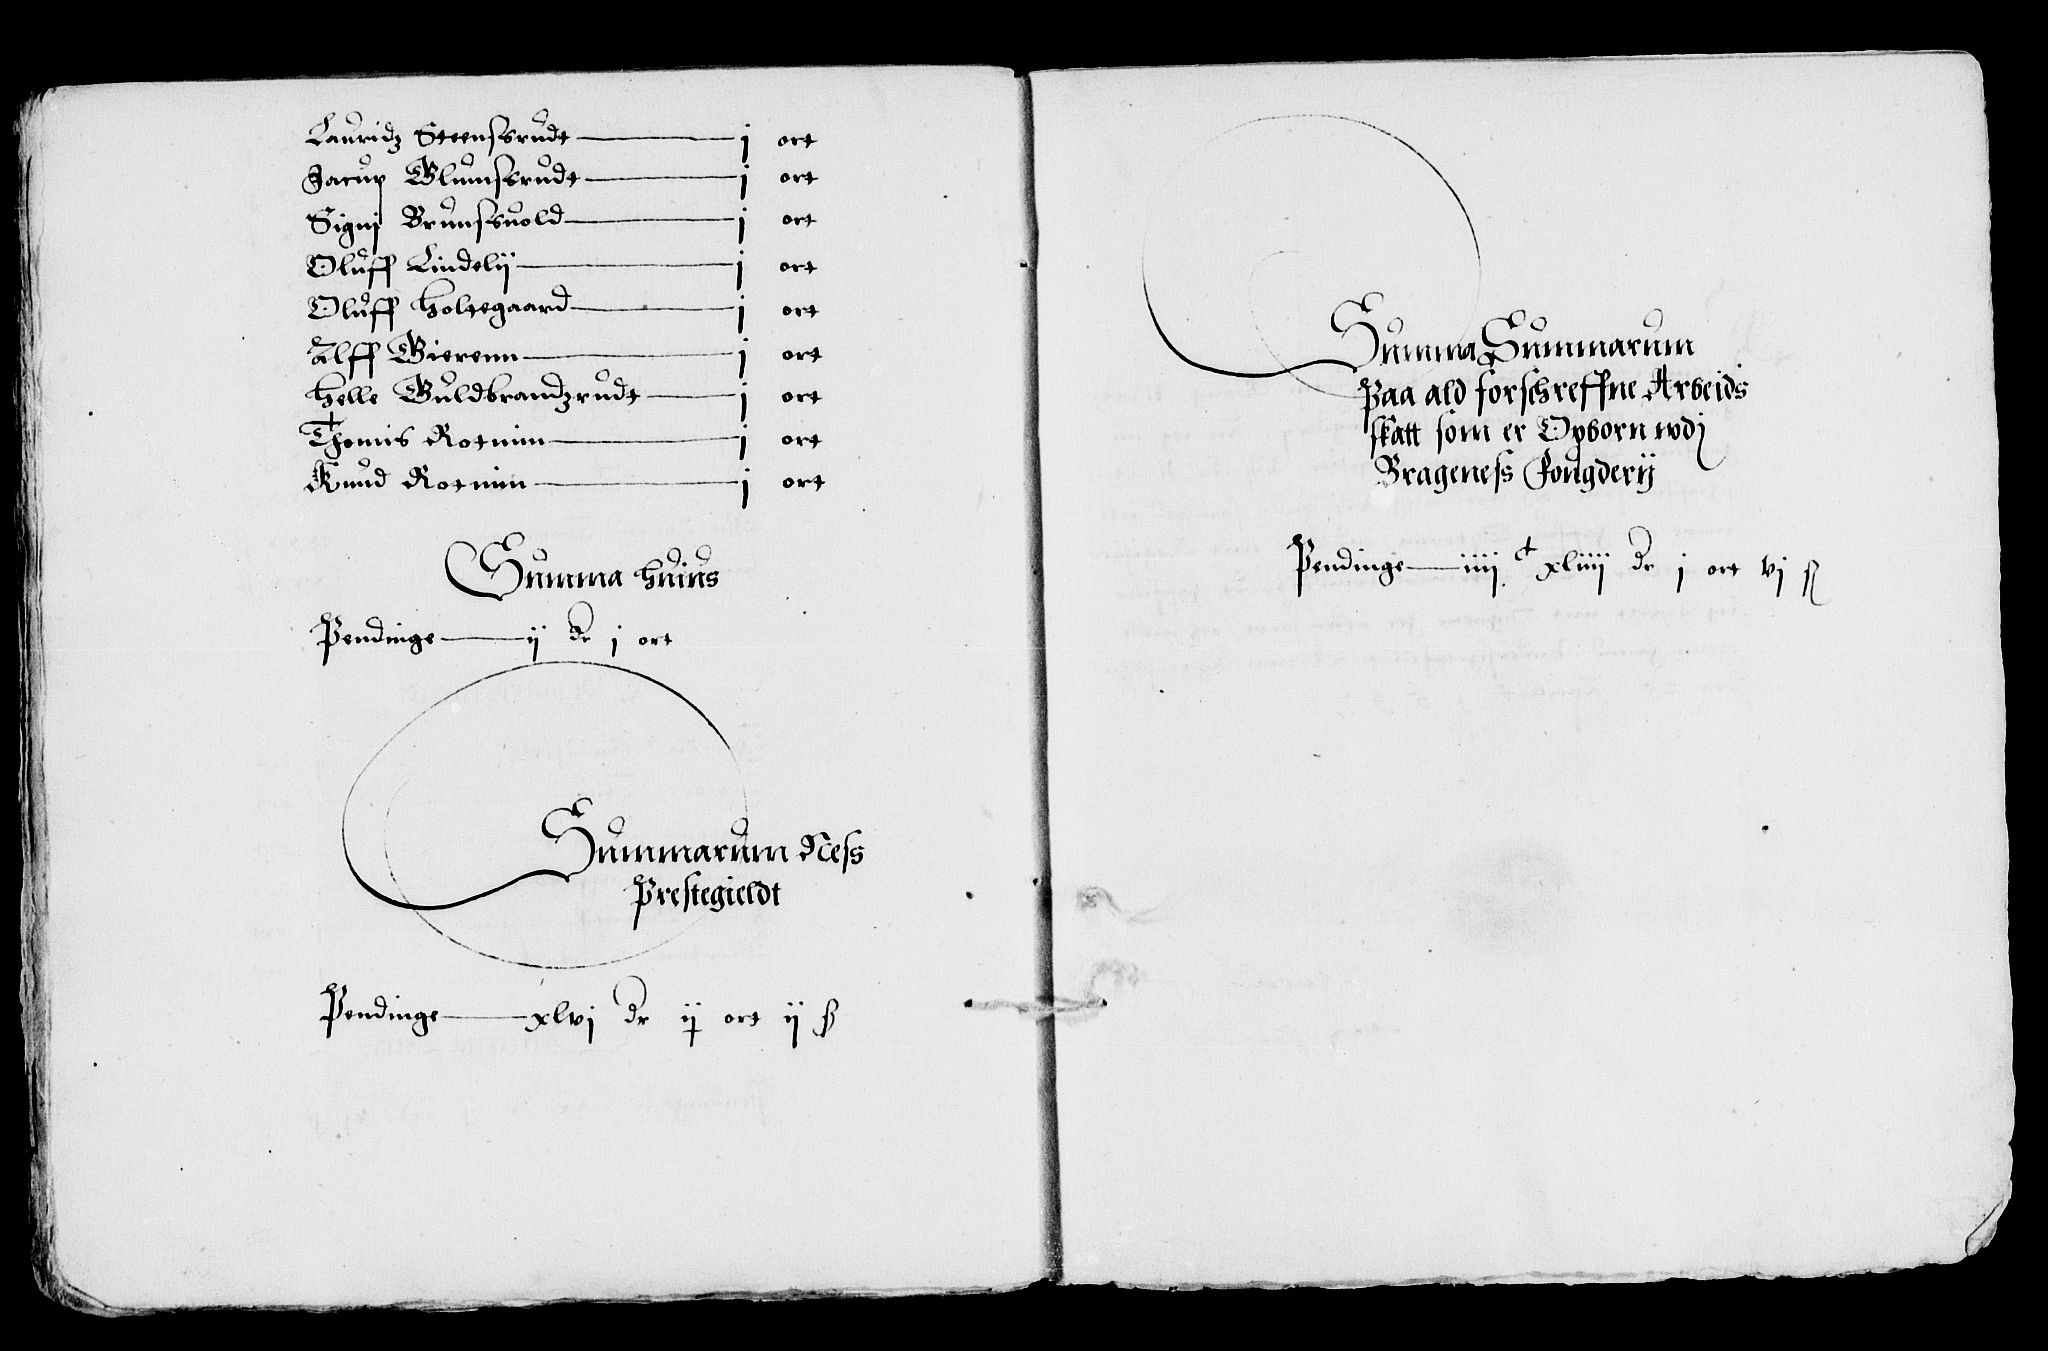 Lauridz Steensrudt — j ort
Jacup Glumsrudt — j ort
Signj Brunsuold — j ort
Oluff Lindelij — j ort
Oluff Holtegaard — j ort
Alff Gierenn — j ort
Helle Guldbrandzrudt — j ort
Thomis Rotnim — j ort
Knud Rotnim — j ort
Summa huius
Pendinge — ij dr j ort
Summarum Ness
Prestegieldt
Pendinge — xlvj dr ij ort ij ß
Summa Summarum
Paa ald forschreffne Arbeids
skatt som er Opborn wdj
Brageness Fougderij
Pendinge — iiij c xliiij dr j ort vj ß